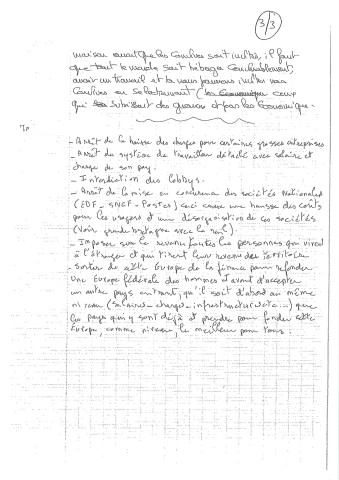 3/3
maison avant que les Caméras soit invitées, il faut
que tout le monde soit hébergé convenablement,
avoir un travail et là nous pouvons inviter nos
en sélectionnant (les économique ceux
qui subissent des guerres et pas les économique.
- Arrêt de la baisse des charges pour certaines grosses entreprises
- Arrêt du système de travailleur détaché avec salaire et
charge de son pays.
- Interdiction des lobbys.
- Arrêt de la mise en concurrence des sociétés Nationales
(EDF - SNCF - Postes) ceci crée une hausse des coûts
pour les usagers et une désorganisation de ces sociétés
(Voir grande bretagne avec le rail).
- Imposer sur le revenu toutes les personnes qui vivent
à l'étranger et qui tirent leur revenu du territoire
- Sortir de cette Europe de la finance pour refonder
une Europe fédérale des hommes et avant d'accepter
un autre pays entrant, qu'il soit d'abord au même
niveau (salaires - charges - infrastructure etc...) que
les pays qui y sont déjà et prendre pour fonder cette
Europe, comme niveau, le meilleur pour tous.